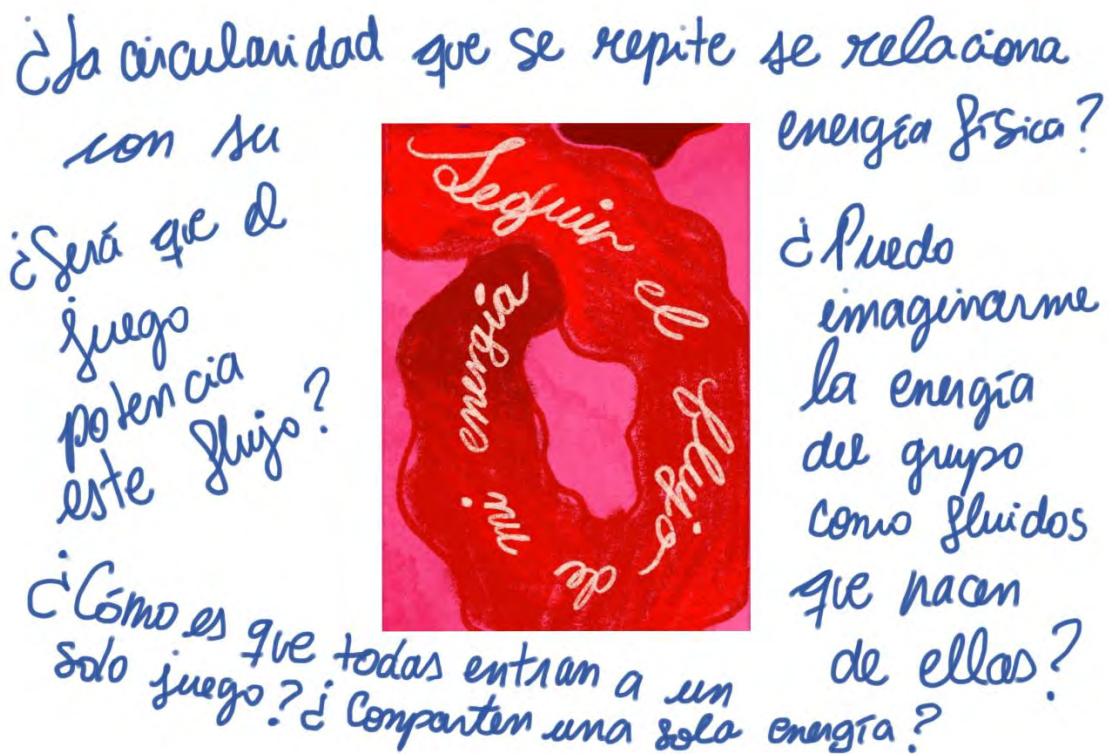 ¿La circularidad que se repite se relaciona
con su
energía física?
¿Será que el
juego
potencia
este flujo?
Seguir el flujo de mi energía
¿Puedo
imaginarme
la energía
del grupo
como fluidos
que nacen
de ellas?
¿Cómo es que todas entran a un
solo juego? ¿Comparten una sola energía?